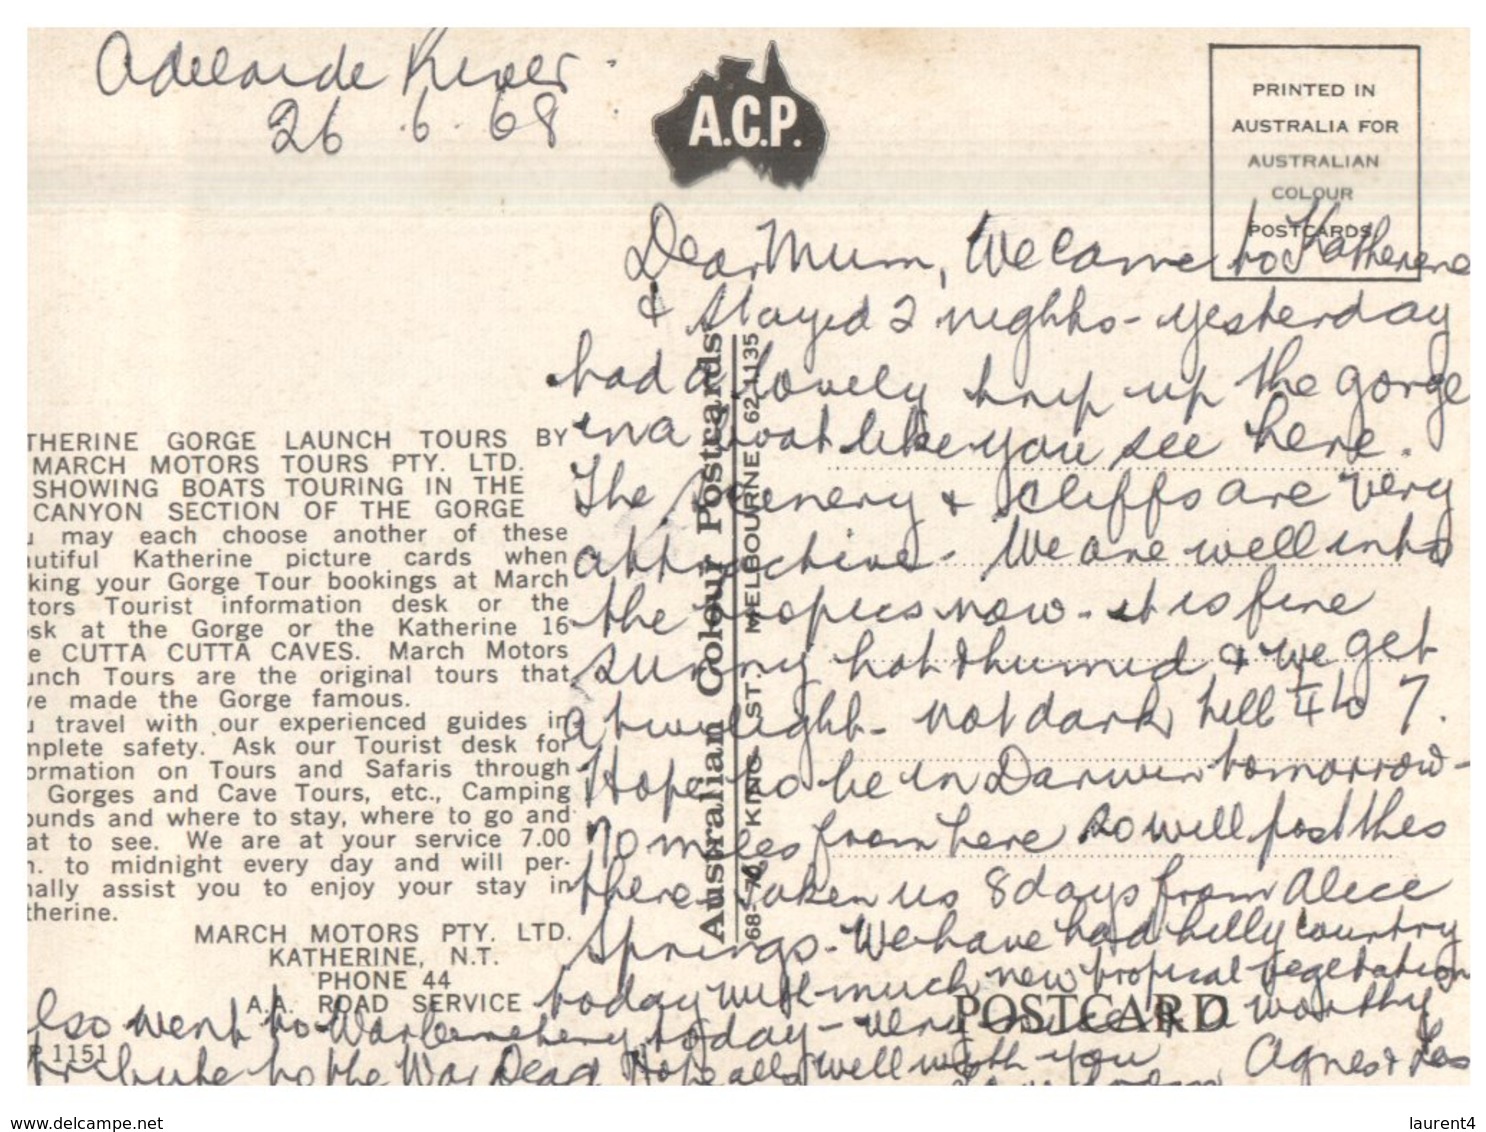 Adelaide River
26.6.68
A.C.P.
PRINTED IN
AUSTRALIA FOR
AUSTRALIAN
COLOUR
POSTCARDS
Dear Mum, We came to Katherene
& stayed 2 nights - yesterday
had a lovely trip up the gorge
in a boat like you see here.
The scenery & cliffs are very
attractive - We are well into
the tropics now - it is fine
sunny hot & humid & we get
a twilight - not dark till ¼ to 7.
Hope to be in Darwin tomorrow -
70 miles from here so will post this
there. Taken us 8 days from Alice
Springs - We have had hilly country
today with much new tropical vegetation
Also went to War Cemetery today - very nice & a worthy
tribute to the War Dead Hope all well with you
Agnes & Les
THERINE GORGE LAUNCH TOURS BY
MARCH MOTORS TOURS PTY. LTD.
SHOWING BOATS TOURING IN THE
CANYON SECTION OF THE GORGE
u may each choose another of these
autiful Katherine picture cards when
king your Gorge Tour bookings at March
tors Tourist information desk or the
sk at the Gorge or the Katherine 16
e CUTTA CUTTA CAVES. March Motors
unch Tours are the original tours that
ve made the Gorge famous.
u travel with our experienced guides in
mplete safety. Ask our Tourist desk for
ormation on Tours and Safaris through
Gorges and Cave Tours, etc., Camping
ounds and where to stay, where to go and
at to see. We are at your service 7.00
n. to midnight every day and will per-
nally assist you to enjoy your stay in
therine.
MARCH MOTORS PTY. LTD.
KATHERINE, N.T.
PHONE 44
A.A. ROAD SERVICE
P 1151
Australian Colour Postcards
68-70 KING ST. MELBOURNE 62-1135
POSTCARD
www.delcampe.net
laurent4